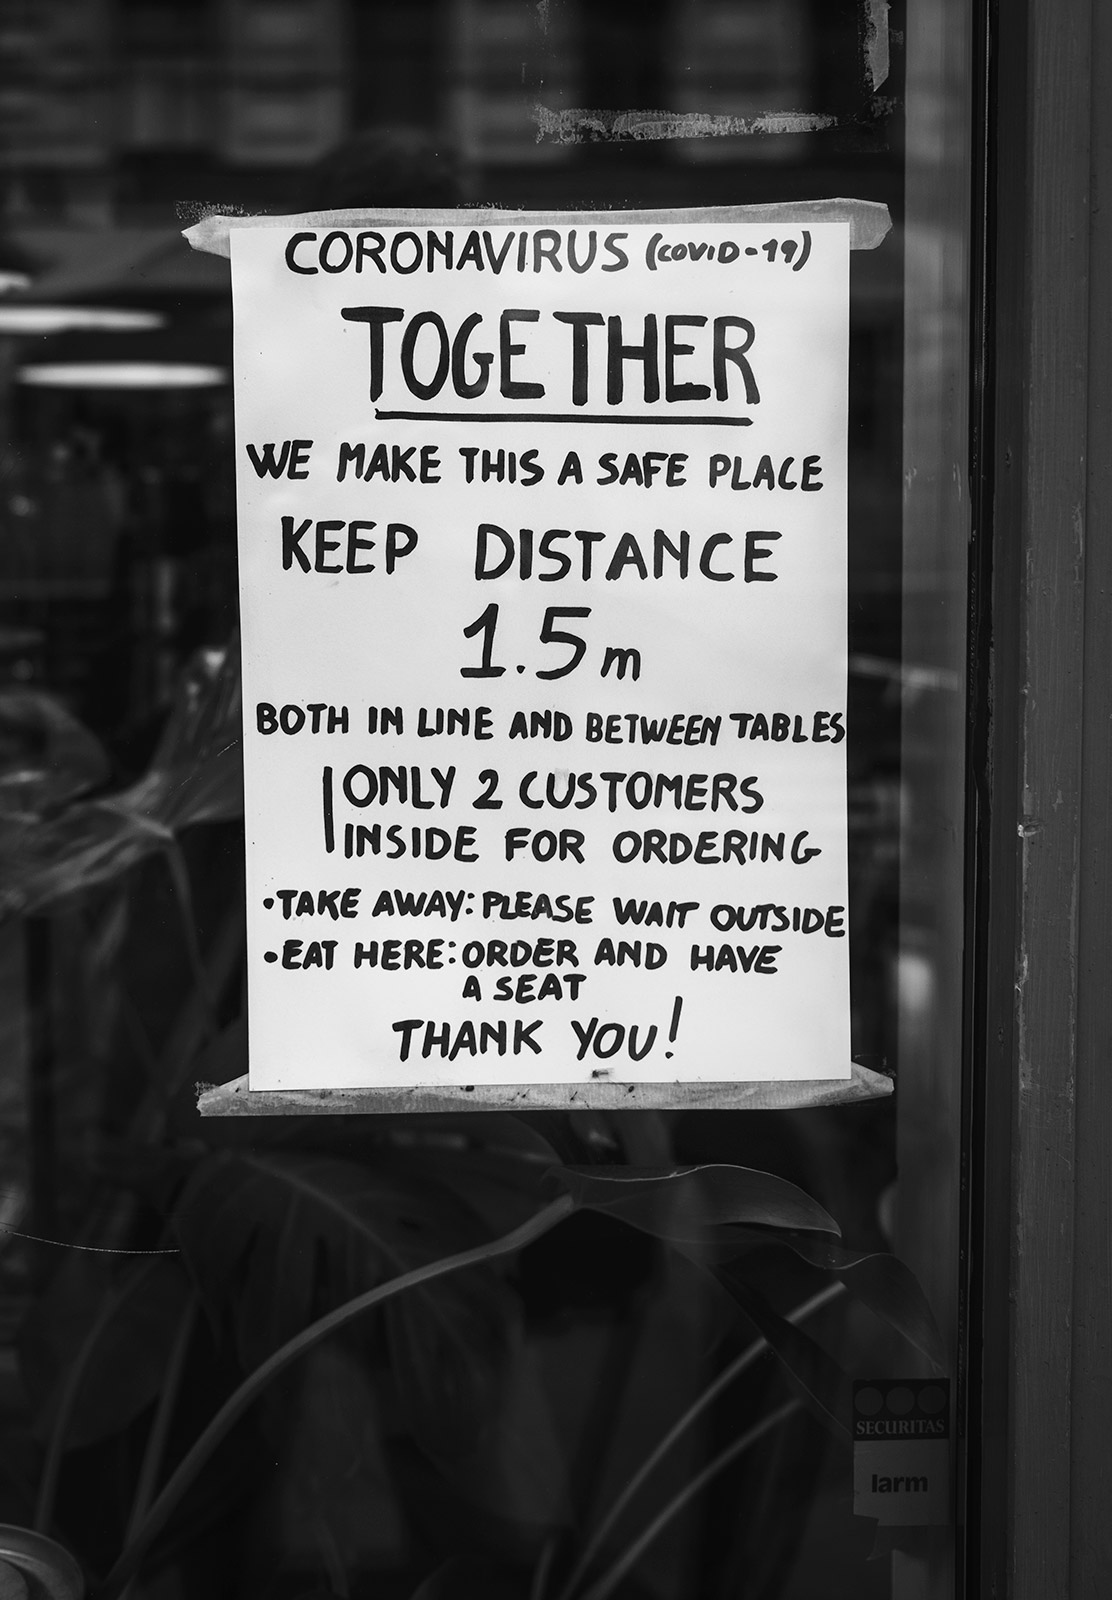 CORONAVIRUS (COVID-19)
TOGETHER
WE MAKE THIS A SAFE PLACE
KEEP DISTANCE
1.5m
BOTH IN LINE AND BETWEEN TABLES
ONLY 2 CUSTOMERS
INSIDE FOR ORDERING
•TAKE AWAY: PLEASE WAIT OUTSIDE
•EAT HERE: ORDER AND HAVE
A SEAT
THANK YOU!
SECURITAS
larm